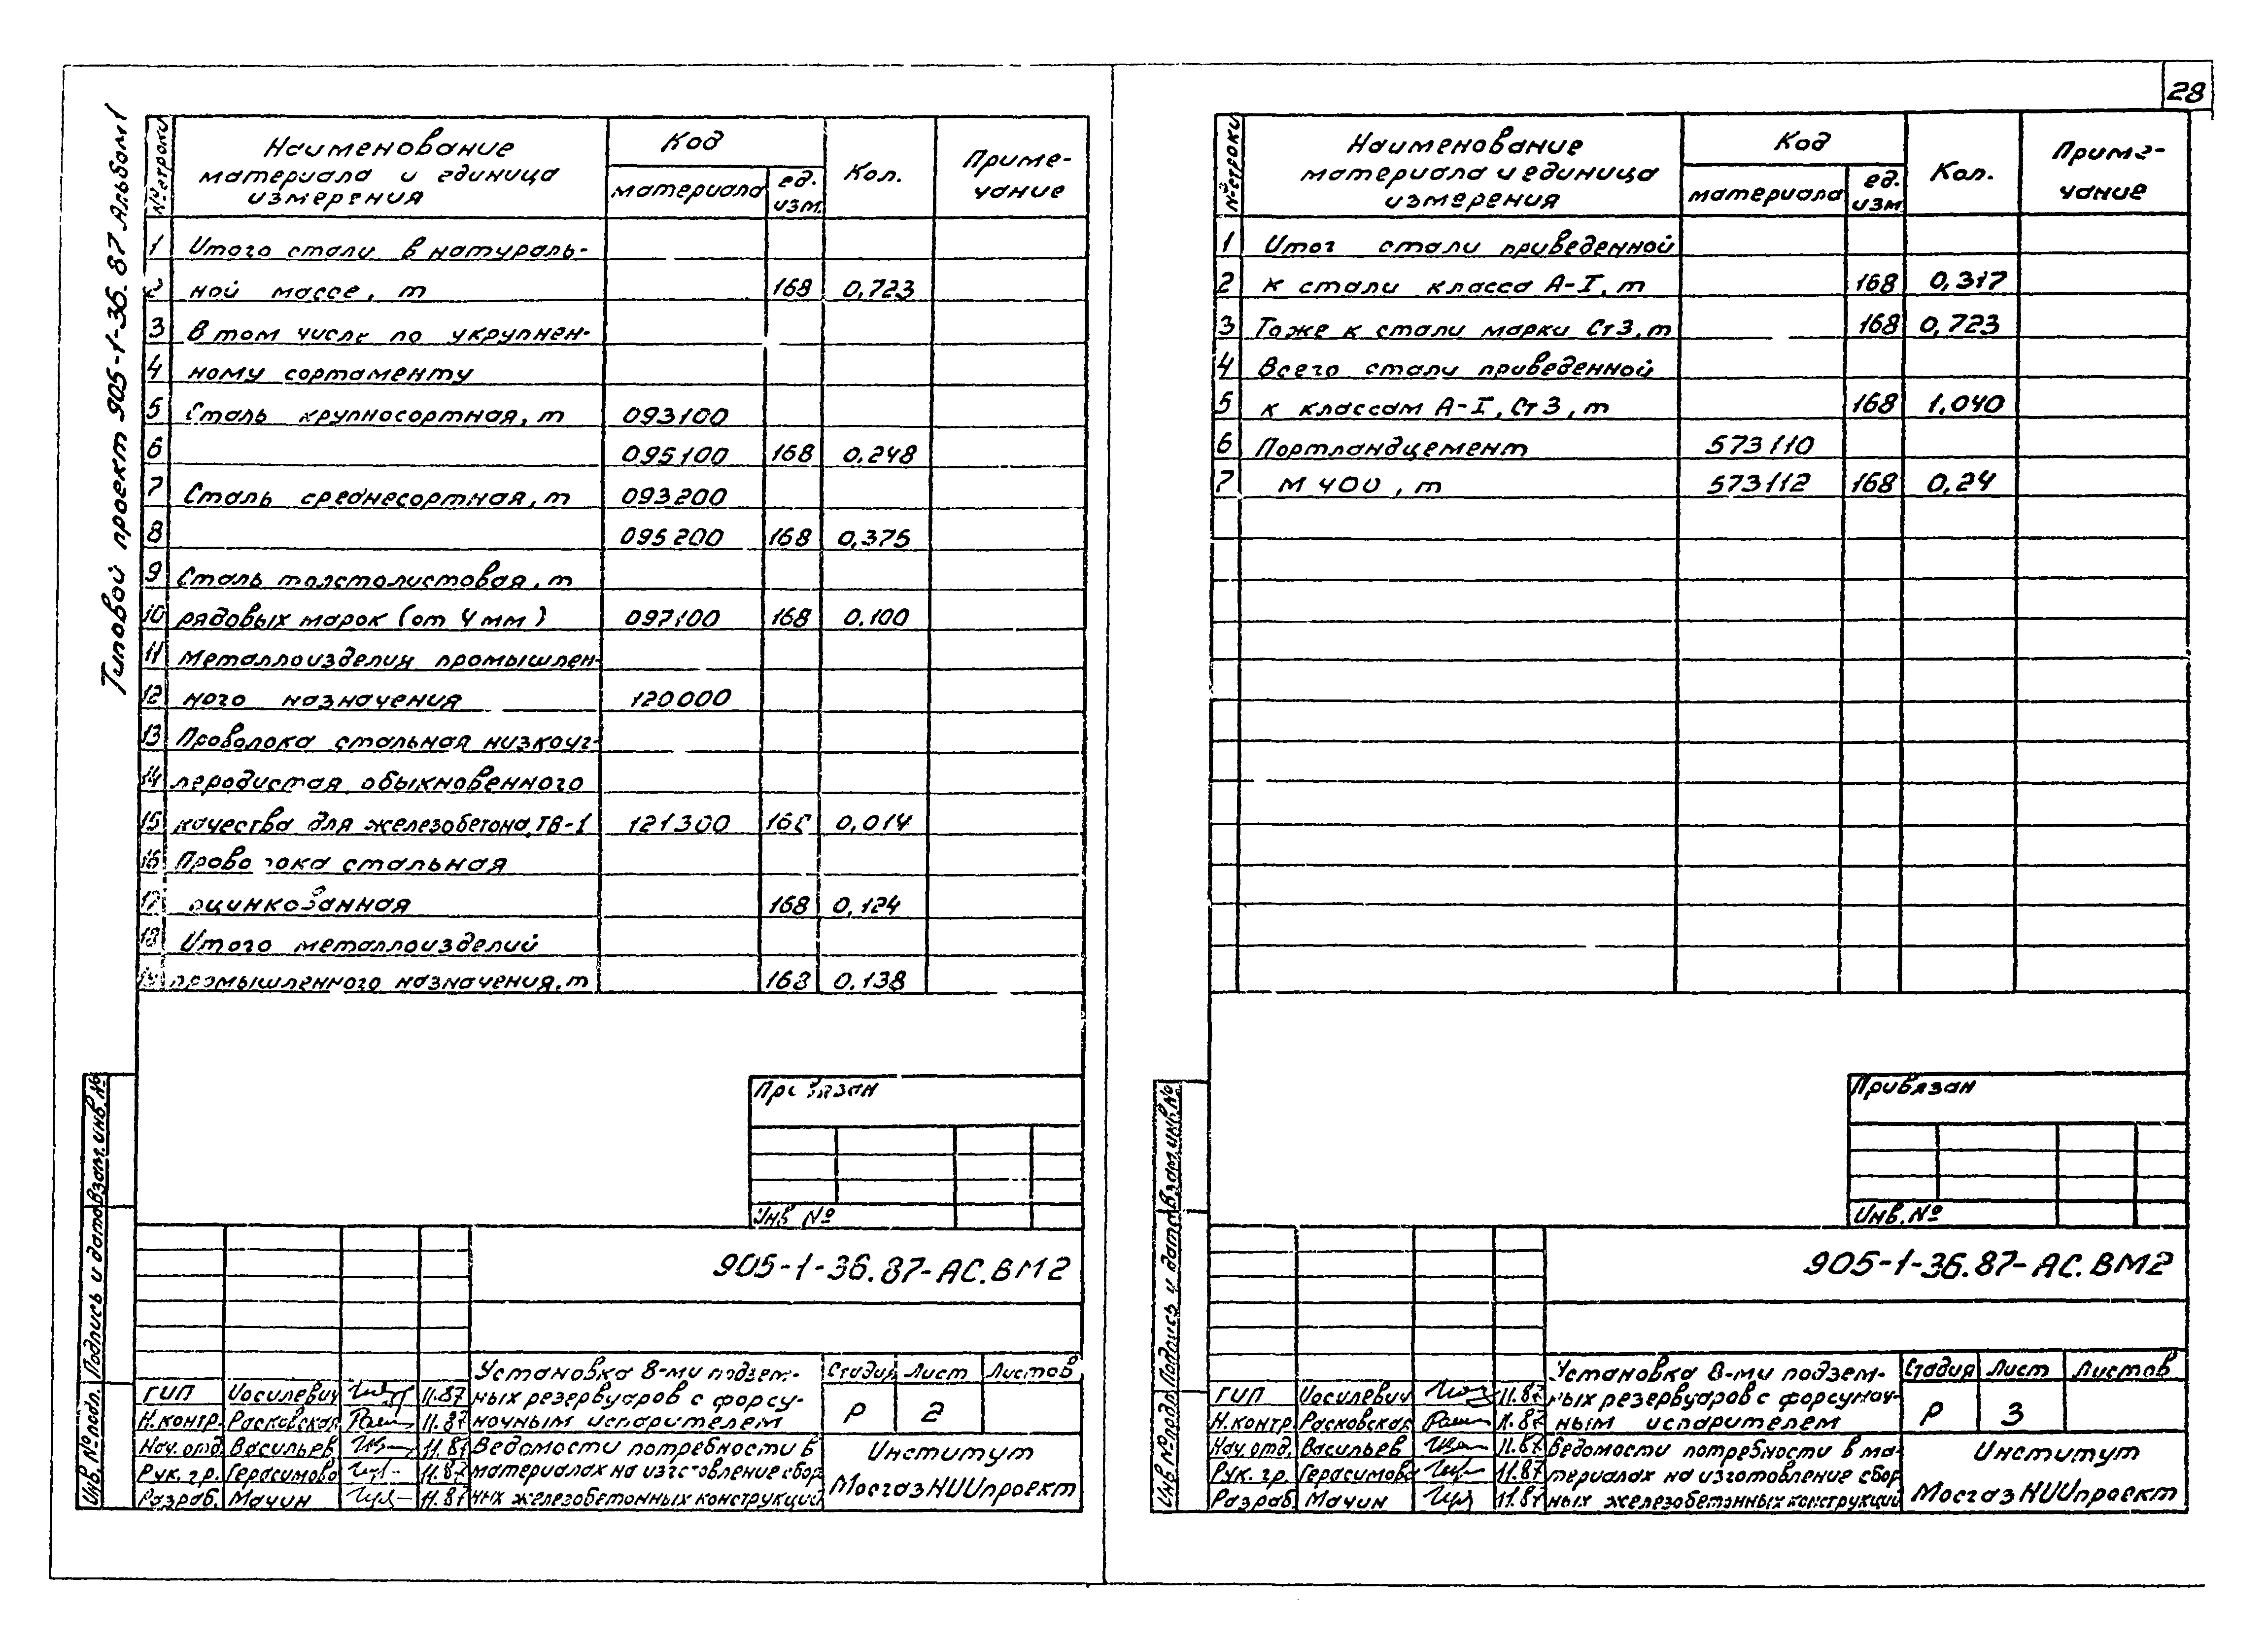 28
Типовой проект 905-1-36.87 Альбом 1
№ строки
Наименование материала и единица измерения
Код
материала
ед. изм.
Кол.
Приме-чание
1 Итого стали в натураль-
2 ной массе, т 168 0,723
3 В том числе по укрупнен-
4 ному сортаменту
5 Сталь крупносортная, т 093100
6 095100 168 0,248
7 Сталь среднесортная, т 093200
8 095200 168 0,375
9 Сталь толстолистовая, т
10 рядовых марок (от 4 мм) 097100 168 0,100
11 Металлоизделия промышлен-
12 ного назначения 120000
13 Проволока стальная низкоуг-
14 леродистая обыкновенного
15 качества для железобетона, ТВ-1 121300 168 0,014
16 Проволока стальная
17 оцинкованная 168 0,124
18 Итого металлоизделий
19 промышленного назначения, т 168 0,138
Привязан
Инв №
905-1-36.87-АС.ВМ2
Установка 8-ми подзем-
ных резервуаров с форсу-
ночным испарителем
Стадия Лист Листов
Р 2
ГИП Иосилевич 11.87
Н.контр. Расковская 11.87
Нач. отд. Васильев 11.87
Рук. гр. Герасимова 11.87
Разраб. Мачин 11.87
Ведомости потребности в
материалах на изготовление сбор
ных железобетонных конструкций
Институт
МосгазНИИпроект
Инв. № подл. Подпись и дата Взам. инв. №
№ строки
Наименование материала и единица измерения
Код
материала
ед. изм
Кол.
Приме-чание
1 Итог стали приведенной
2 к стали класса А-I, т 168 0,317
3 Тоже к стали марки Ст3, т 168 0,723
4 Всего стали приведенной
5 к классам А-I, Ст3, т 168 1,040
6 Портландцемент 573110
7 М 400, т 573112 168 0,24
Привязан
Инв. №
905-1-36.87-АС.ВМ2
Установка 8-ми подзем-
ных резервуаров с форсуноч-
ным испарителем
Стадия Лист Листов
Р 3
ГИП Иосилевич 11.87
Н.контр Расковская 11.87
Нач. отд. Васильев 11.87
Рук. гр. Герасимова 11.87
Разраб Мачин 11.87
Ведомости потребности в ма-
териалах на изготовление сбор
ных железобетонных конструкций
Институт
МосгазНИИпроект
Инв № подл Подпись и дата Взам. инв. №